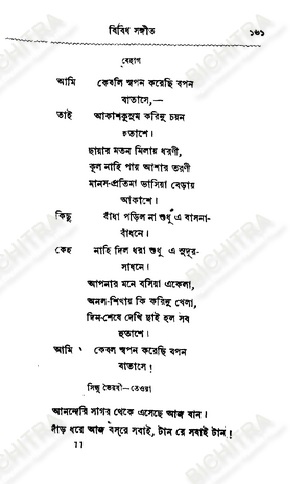 বিবিধ সঙ্গীত ১৬১
বেহাগ
আমি কেবলি স্বপন করেছি বপন
বাতাসে,—
তাই আকাশকুসুম করিনু চয়ন
হতাশে।
ছায়ার মতন মিলায় ধরণী,
কূল নাহি পায় আশার তরণী
মানস-প্রতিমা ভাসিয়া বেড়ায়
আকাশে।
কিছু বাঁধা পড়িল না শুধু এ বাসনা-
বাঁধনে।
কেহ নাহি দিল ধরা শুধু এ সুদূর-
সাধনে।
আপনার মনে বসিয়া একেলা,
অনল-শিখায় কি করিনু খেলা,
দিন-শেষে দেখি ছাই হল সব
হুতাশে।
আমি কেবল স্বপন করেছি বপন
বাতাসে!
সিন্ধু ভৈরবী—তেওরা
আনন্দেরি সাগর থেকে এসেছে আজ বান।
দাঁড় ধরে আজ বস্‌রে সবাই, টান রে সবাই টান!
11
BICHITRA